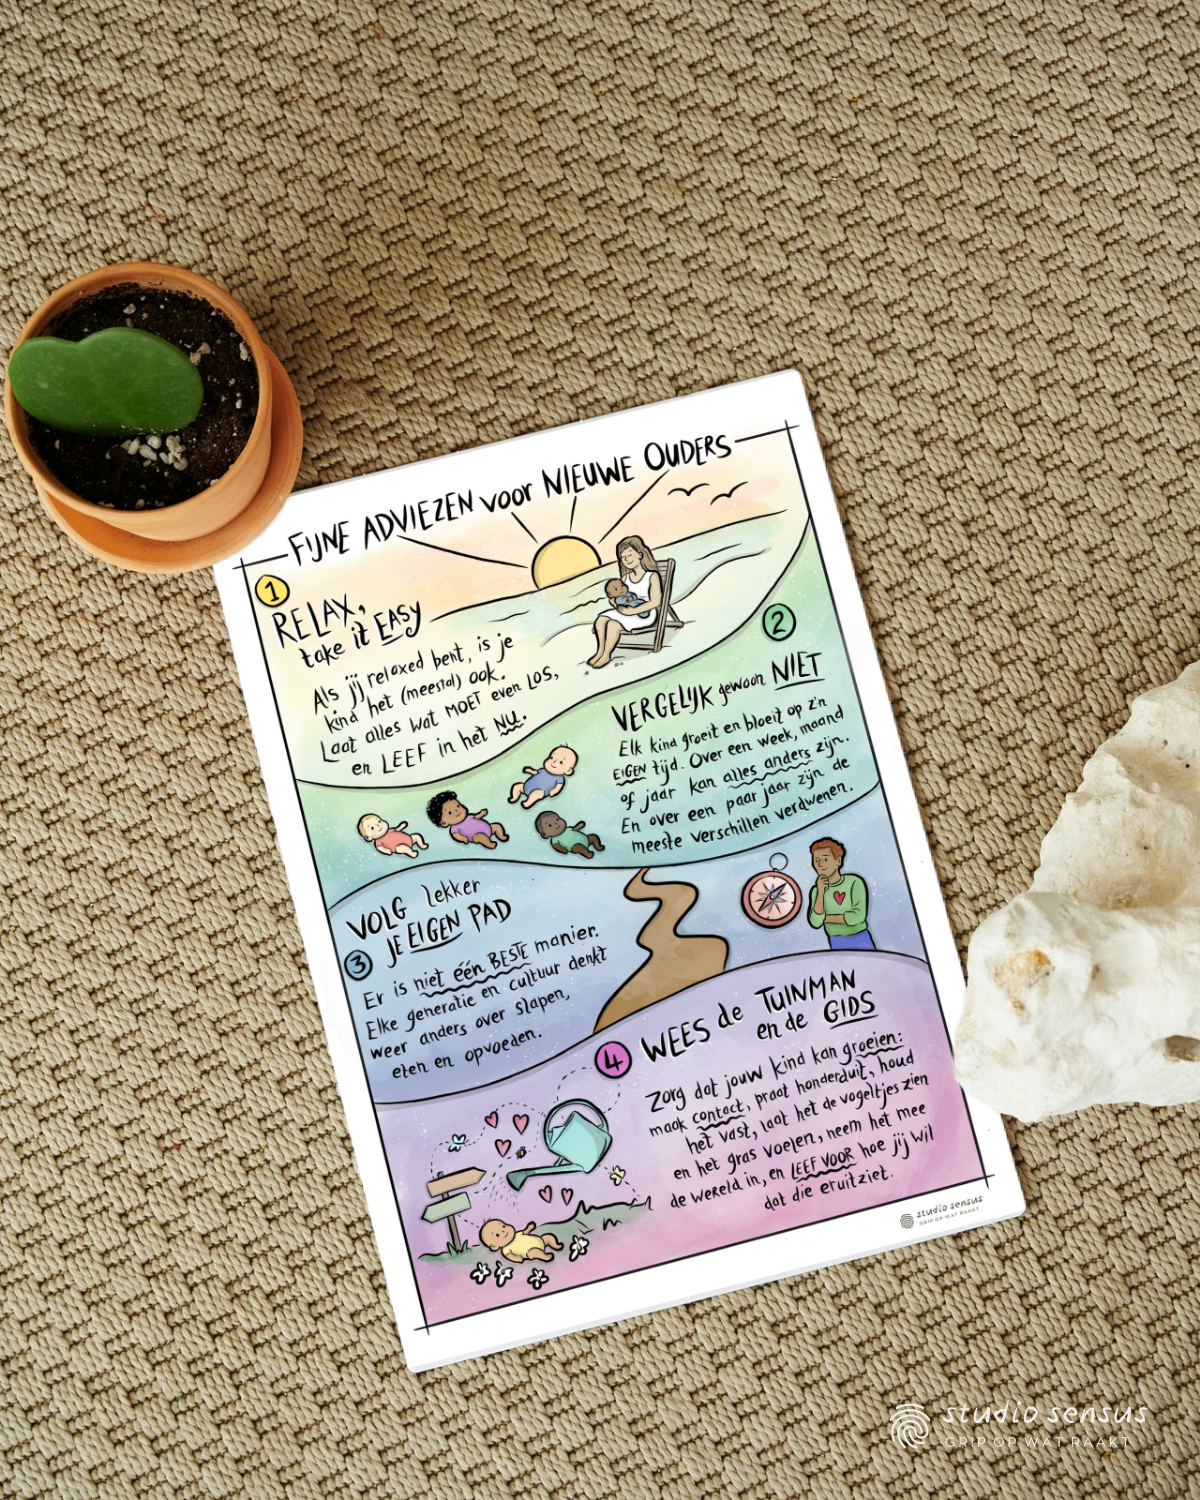 FIJNE ADVIEZEN voor NIEUWE OUDERS
1
RELAX,
take it EASY
Als jij relaxed bent, is je
kind het (meestal) ook.
Laat alles wat MOET even LOS,
en LEEF in het NU.
2
VERGELIJK gewoon NIET
Elk kind groeit en bloeit op z'n
EIGEN tijd. Over een week, maand
of jaar kan alles anders zijn.
En over een paar jaar zijn de
meeste verschillen verdwenen.
VOLG lekker
je EIGEN PAD
3
Er is niet één BESTE manier.
Elke generatie en cultuur denkt
weer anders over slapen,
eten en opvoeden.
4
WEES de TUINMAN
en de GIDS
Zorg dat jouw kind kan groeien:
maak contact, praat honderduit, houd
het vast, laat het de vogeltjes zien
en het gras voelen, neem het mee
de wereld in, en LEEF VOOR hoe jij wil
dat die eruitziet.
studio sensus
GRIP OP WAT RAAKT
studio sensus
GRIP OP WAT RAAKT